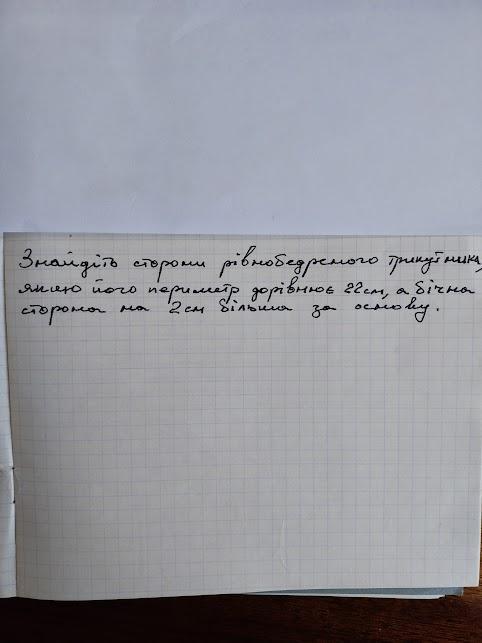 Знайдіть сторони рівнобедреного трикутника,
якщо його периметр дорівнює 22см, а бічна
сторона на 2см більша за основу.